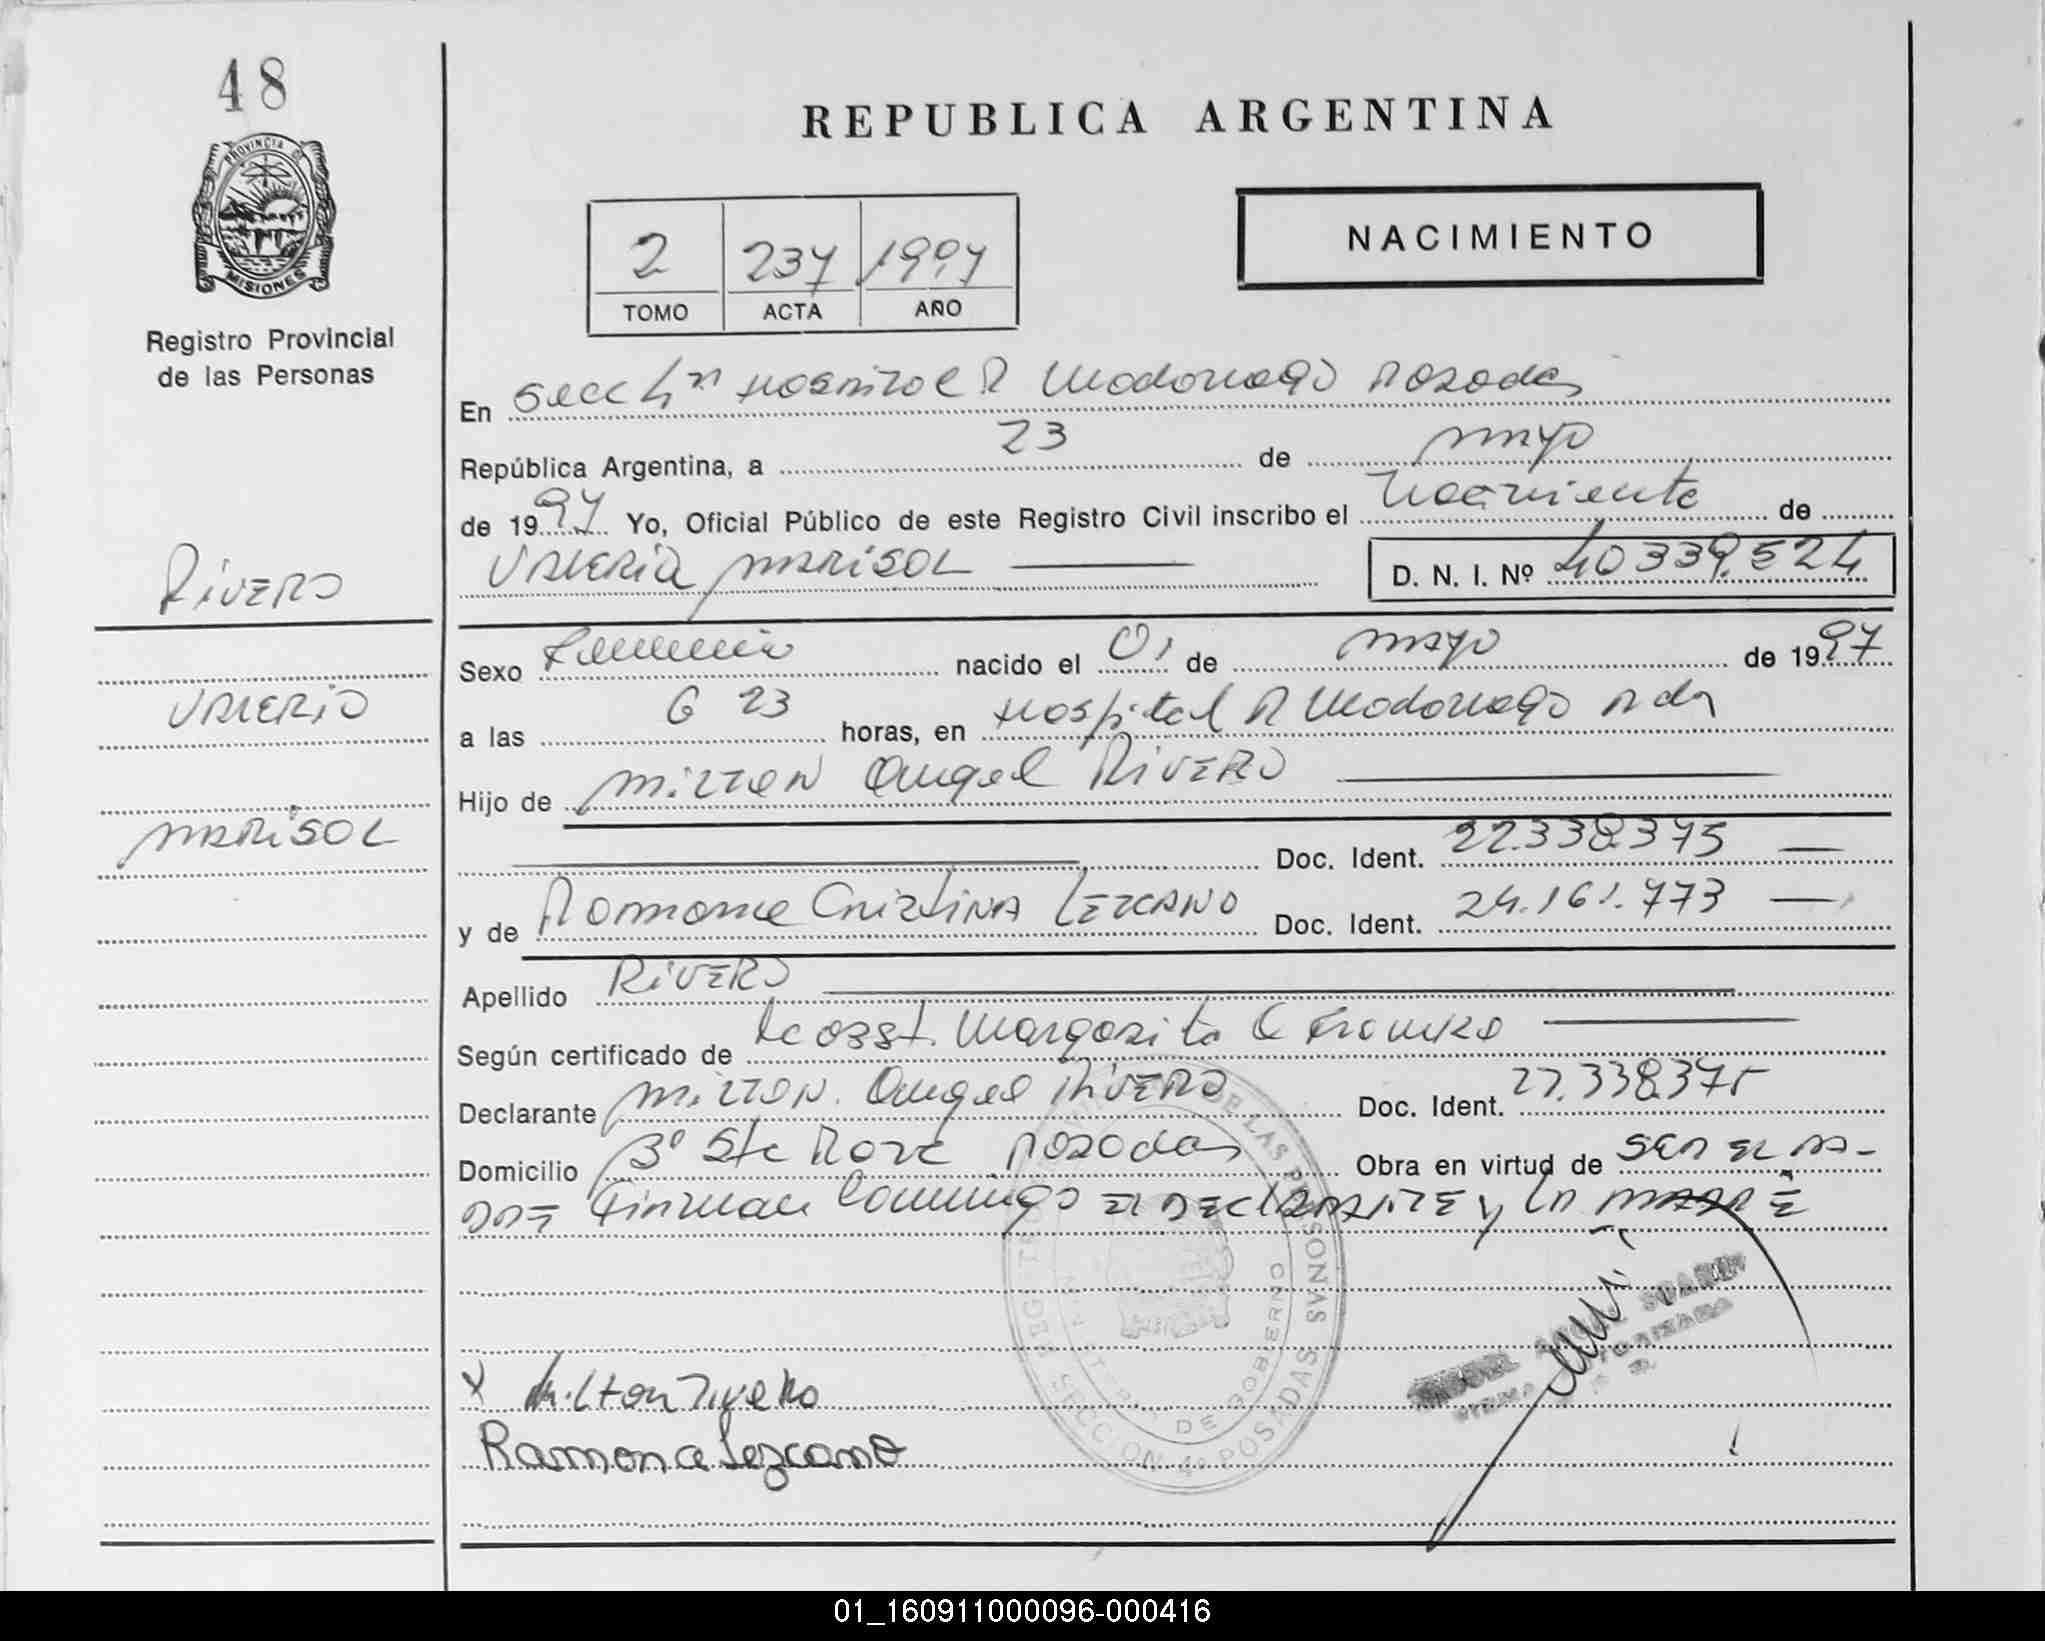 48
REPUBLICA ARGENTINA
PROVINCIA DE
MISIONES
Registro Provincial
de las Personas
2 237 1997
TOMO ACTA AÑO
NACIMIENTO
En Secc 4ta Hospital R Madariaga Posadas
República Argentina, a 23 de mayo
de 1997 Yo, Oficial Público de este Registro Civil inscribo el Nacimiento de
VALERIA MARISOL D. N. I. Nº 40339.524
RIVERO
VALERIA
MARISOL
Sexo Femenino nacido el 01 de mayo de 1997
a las 6 23 horas, en Hospital R Madariaga Pdas
Hijo de MILTON Angel RIVERO
Doc. Ident. 22.338.375
y de Ramona Cristina LEZCANO Doc. Ident. 24.161.773
Apellido RIVERO
Según certificado de Margarita
Declarante MILTON Angel RIVERO Doc. Ident. 22.338.375
Domicilio Bº Sta Rosa Posadas Obra en virtud de SER EL PA-
DRE Firman Conmigo EL DECLARANTE y LA MADRE
SECCION 4º POSADAS
DE GOBIERNO
x Milton Rivero
Ramona Lezcano
01_160911000096-000416